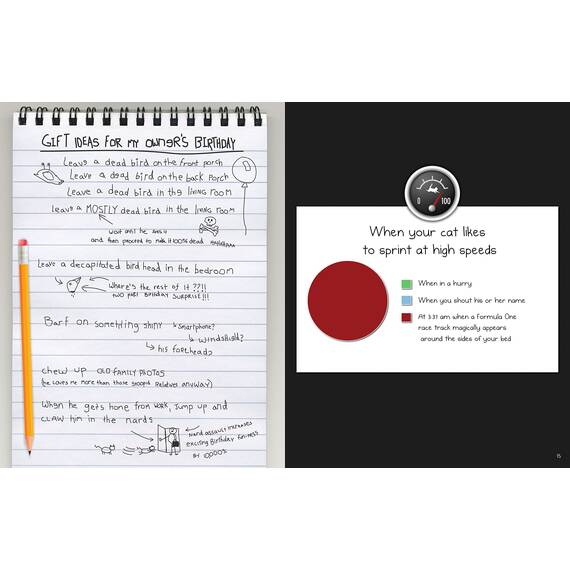 GIFT IDEAS FOR MY OWNER'S BIRTHDAY
Leave a dead bird on the front porch
Leave a dead bird on the back porch
Leave a dead bird in the living room
leave a MOSTLY dead bird in the living room
wait until he sees it
and then proceed to make it 100% dead
Leave a decapitated bird head in the bedroom
Where's the rest of it??!!
TWO PART BIRTHDAY SURPRISE!!!
Barf on something shiny
smartphone?
windshield?
his forehead?
chew up OLD FAMILY PHOTOS
(he loves me more than those stoopid Relatives anyway)
When he gets home from work, jump up and
claw him in the nards
Nard assault increases
exciting Birthday Fun-ness
BY 10000%
0 100
When your cat likes
to sprint at high speeds
When in a hurry
When you shout his or her name
At 3:31 am when a Formula One
race track magically appears
around the sides of your bed
15